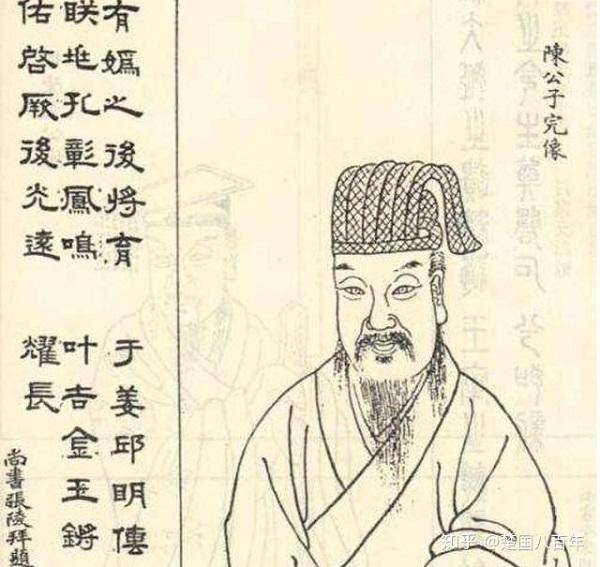 陳公子完像
有媯之後將育 于姜邱明傳
孔彰鳳鳴 叶吉金玉鏘
佑啓厥後光遠 耀長
尚書張陵拜題
知乎 @楚国八百年